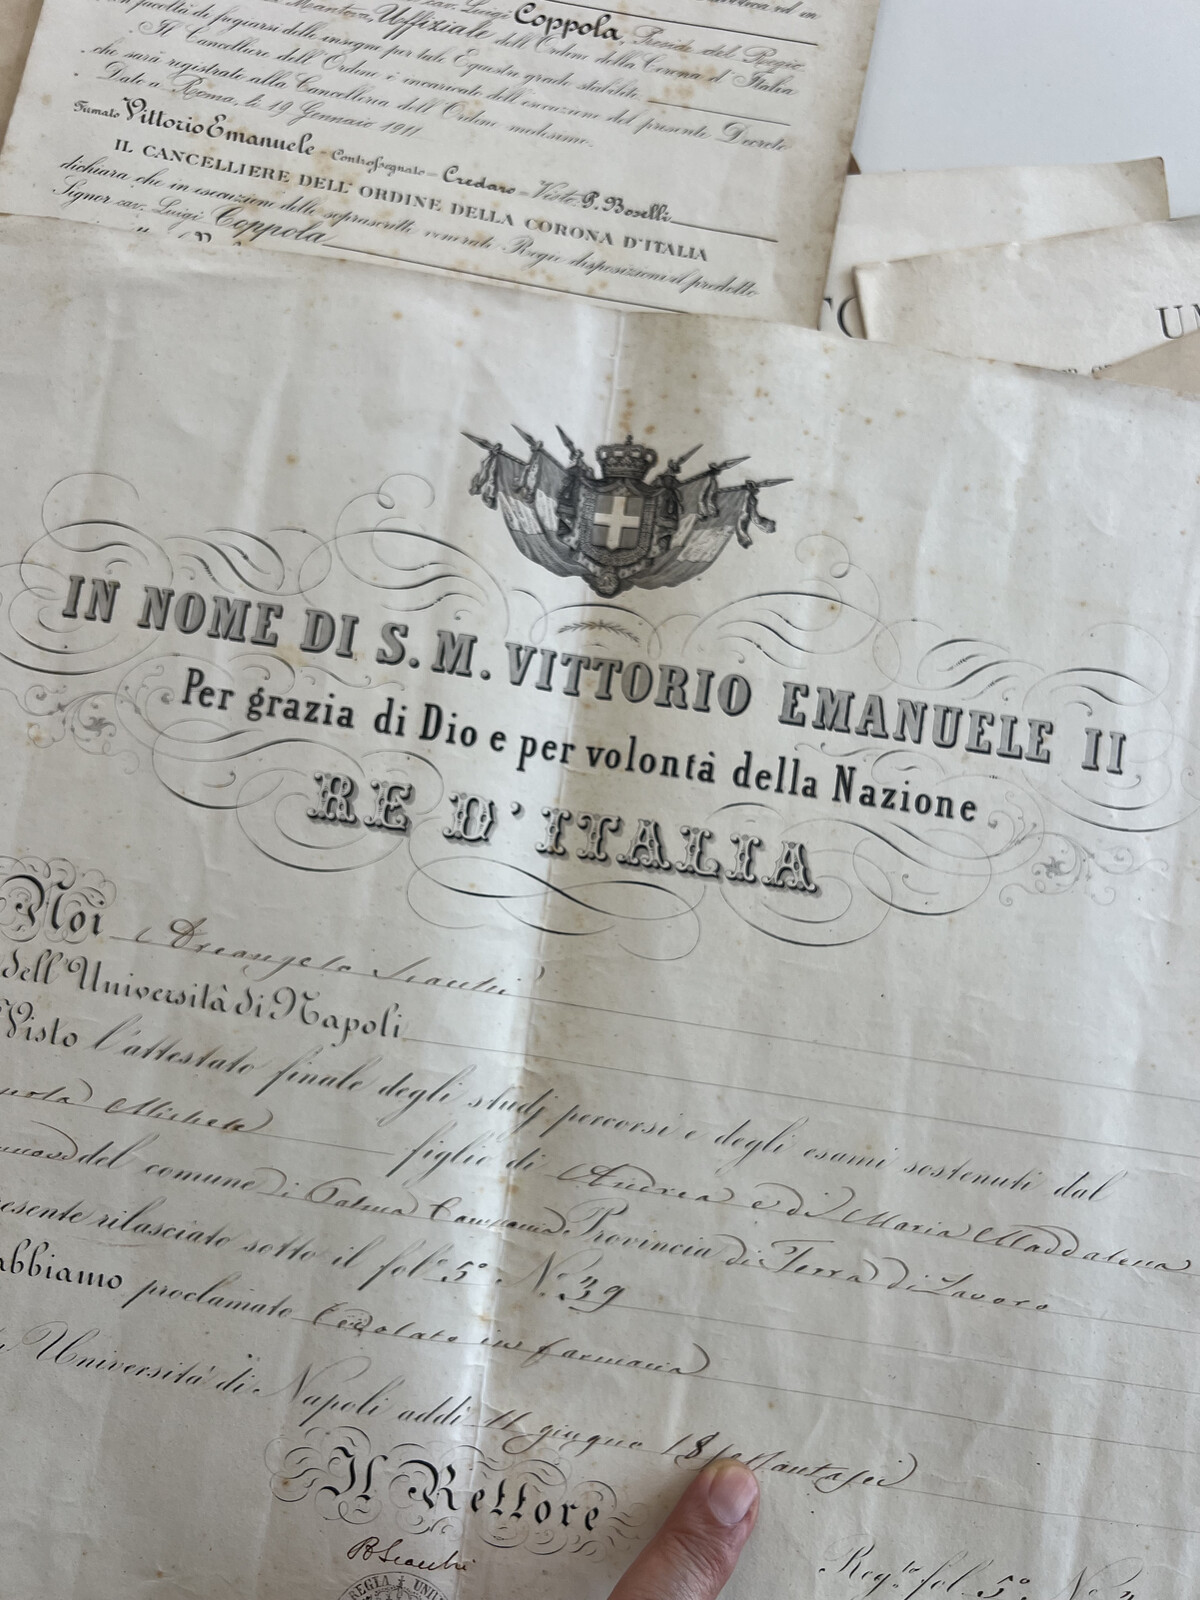 Luigi Coppola, Preside del Regio
Mantova, Uffiziale dell'Ordine della Corona d'Italia
con facoltà di fregiarsi delle insegne per tale Equestre grado stabilite.
Il Cancelliere dell'Ordine è incaricato dell'esecuzione del presente Decreto
che sarà registrato alla Cancelleria dell'Ordine medesimo.
Dato a Roma, li 19 Gennaio 1911
Firmato Vittorio Emanuele - Controssegnato - Credaro - Visto P. Boselli
IL CANCELLIERE DELL'ORDINE DELLA CORONA D'ITALIA
dichiara che in esecuzione delle soprascritte venerate Regie disposizioni il predetto
Signor cav. Luigi Coppola
IN NOME DI S. M. VITTORIO EMANUELE II
Per grazia di Dio e per volontà della Nazione
RE D'ITALIA
Noi Arcangelo Scacchi
dell'Università di Napoli
Visto l'attestato finale degli studj percorsi e degli esami sostenuti dal
Michele figlio di Andrea e di Maria Maddalena
del comune di Palma Campania Provincia di Terra di Lavoro
rilasciato sotto il fol.° 5° N.° 39
abbiamo proclamato Cedolato in farmacia
Università di Napoli addì 11 giugno 18
Il Rettore
Scacchi
REGIA UNIV
Reg.to fol. 5° N.